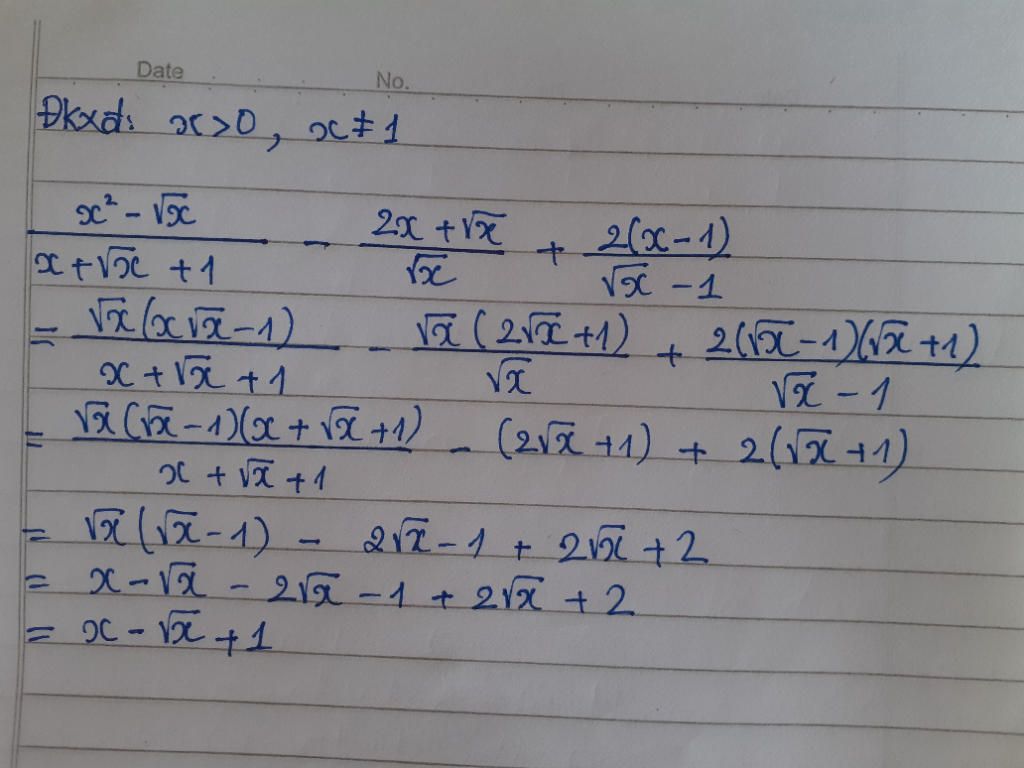 Date No.
Đkxđ: x>0, x≠1
(x² - √x)/(x + √x + 1) - (2x + √x)/(√x) + (2(x-1))/(√x - 1)
= (√x(x√x - 1))/(x + √x + 1) - (√x(2√x + 1))/(√x) + (2(√x - 1)(√x + 1))/(√x - 1)
= (√x(√x - 1)(x + √x + 1))/(x + √x + 1) - (2√x + 1) + 2(√x + 1)
= √x(√x - 1) - 2√x - 1 + 2√x + 2
= x - √x - 2√x - 1 + 2√x + 2
= x - √x + 1